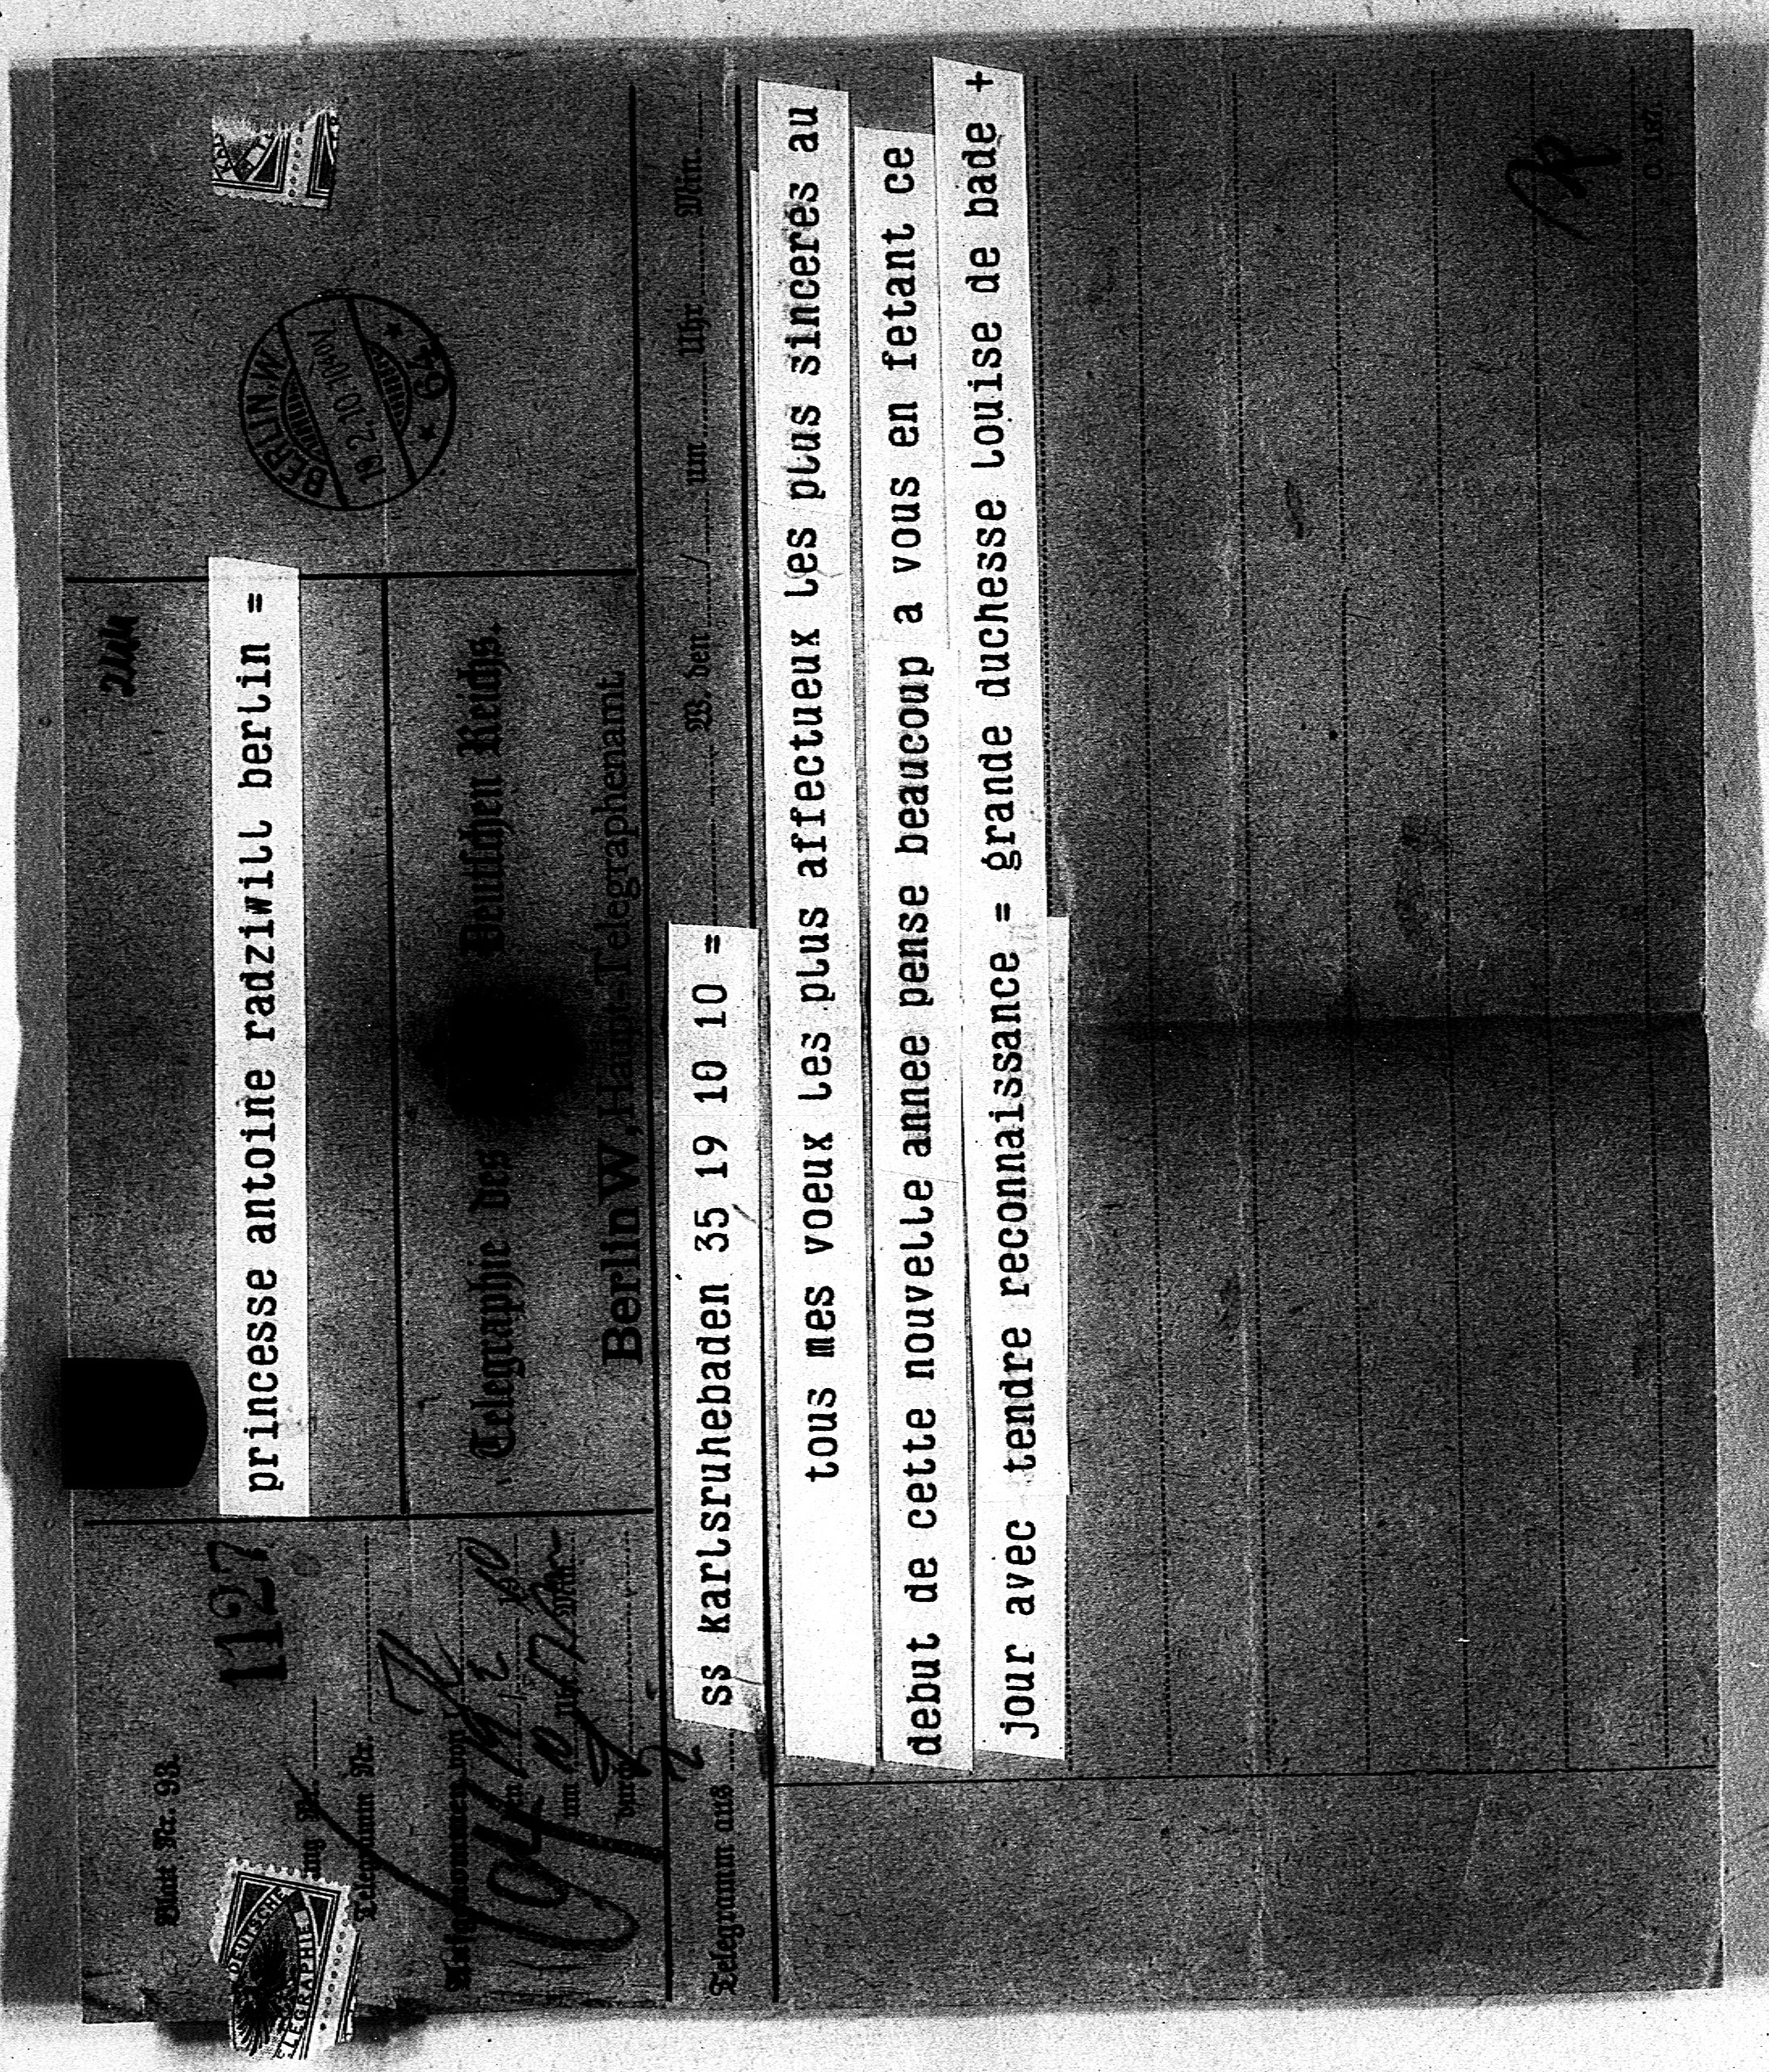 Blatt Nr. 93.
1127
Telegramm Nr.
princesse antoine radziwill berlin =
Telegraphie des Deutschen Reichs.
Berlin W, Haupt-Telegraphenamt
BERLIN.W
19.2.10.10
* 64. *
DEUTSCHE
TELEGRAPHIE
Aufgenommen von
Telegramm aus
ss karlsruhebaden 35 19 10 10 =
W. den / um Uhr Min.
tous mes voeux les plus affectueux les plus sinceres au
debut de cette nouvelle annee pense beaucoup a vous en fetant ce
jour avec tendre reconnaissance = grande duchesse louise de bade +